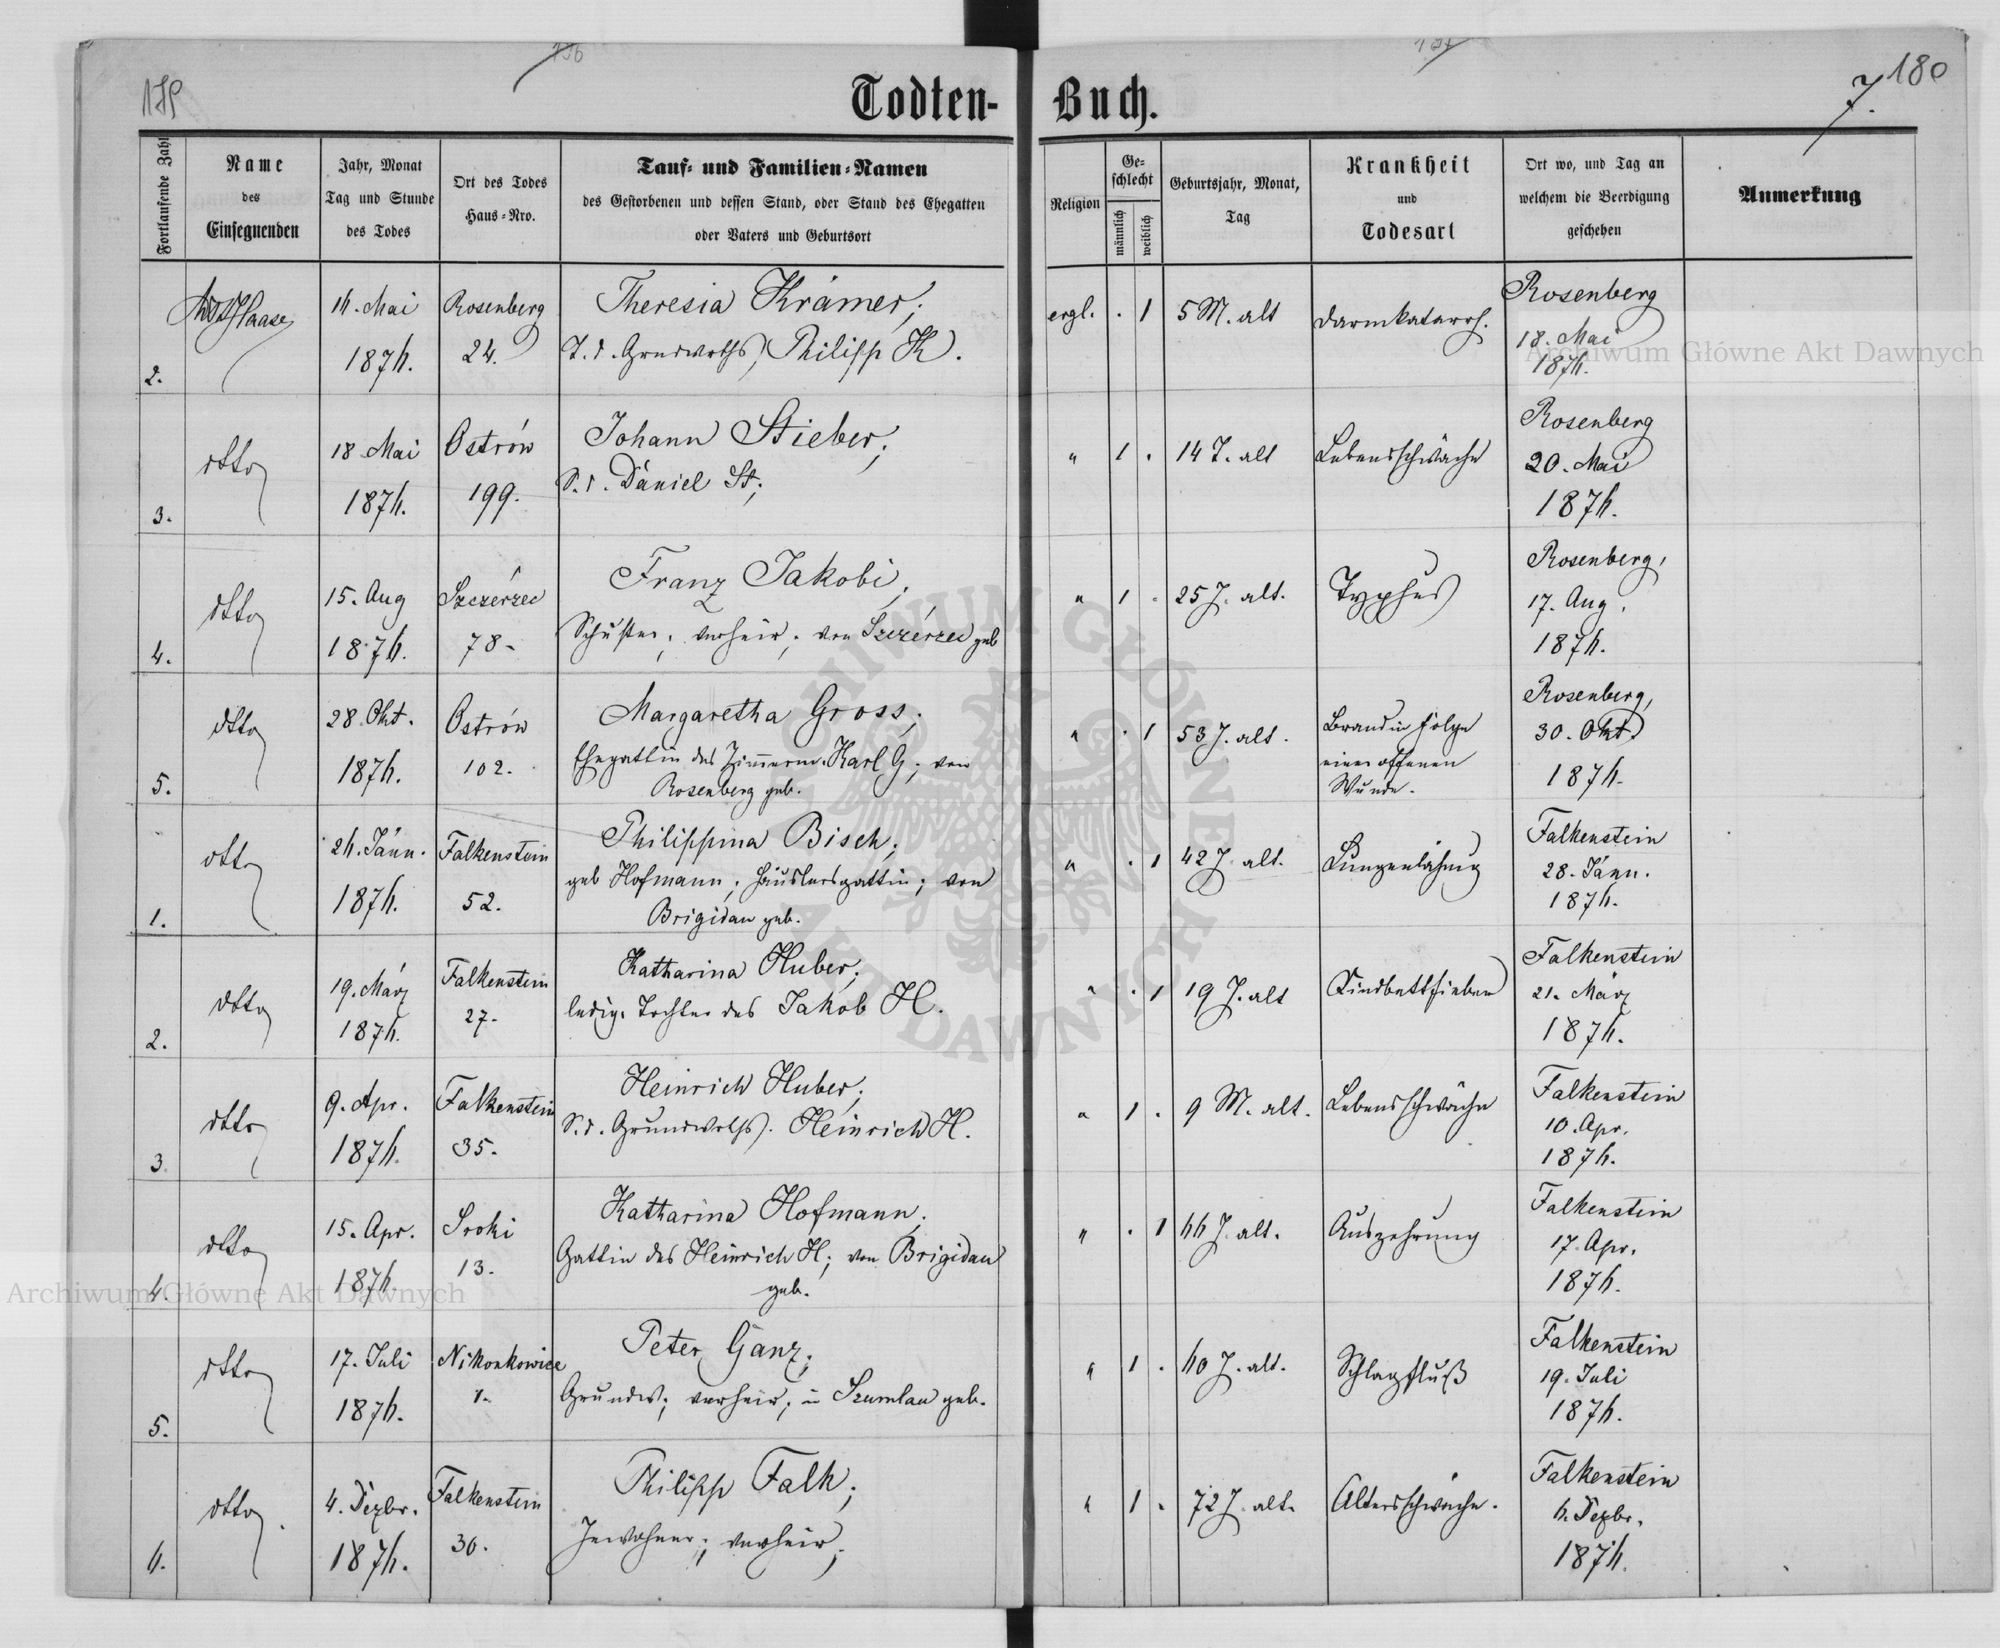 179
136
Todten-
Buch.
137
7.
180
Fortlaufende Zahl
Name
des
Einsegnenden
Jahr, Monat
Tag und Stunde
des Todes
Ort des Todes
Haus-Nro.
Tauf- und Familien-Namen
des Gestorbenen und dessen Stand, oder Stand des Ehegatten
oder Vaters und Geburtsort
Religion
Ge-
schlecht
männlich
weiblich
Geburtsjahr, Monat,
Tag
Krankheit
und
Todesart
Ort wo, und Tag an
welchem die Beerdigung
geschehen
Anmerkung
2.
Haase
16. Mai
1876.
Rosenberg
24.
Theresia Krämer;
T. d. Grndwrths, Philipp K.
evgl. . 1
5 M. alt
Darmkatarrh.
Rosenberg
18. Mai
1876.
3.
dtto
18 Mai
1876.
Ostrów
199.
Johann Stieber;
S. d. Daniel St;
" 1 .
14 J. alt
Lebensschwäche
Rosenberg
20. Mai
1876.
4.
dtto
15. Aug
1876.
Szczérzec
78-
Franz Jakobi;
Schuster; verheir; von Szczérzec geb
" 1 .
25 J. alt.
Typhus
Rosenberg,
17. Aug.
1876.
5.
dtto
28. Okt.
1876.
Ostrów
102.
Margaretha Gross;
Ehegattin des Zimmerm. Karl G; von
Rosenberg geb.
" . 1
53 J. alt.
Brand in folge
einer offenen
Wunde.
Rosenberg,
30. Okt.
1876.
1.
dtto
26. Jänn.
1876.
Falkenstein
52.
Philippina Bisch;
geb Hofmann; Häuslersgattin; von
Brigidau geb.
" . 1
42 J. alt.
Lungenlähmung
Falkenstein
28. Jänn.
1876.
2.
dtto
19. März
1876.
Falkenstein
27-
Katharina Huber;
ledig. Tochter des Jakob H.
" . 1
19 J. alt
Kindbettfieber
Falkenstein
21. März
1876.
3.
dtto
9. Apr.
1876.
Falkenstein
35.
Heinrich Huber;
S. d. Grundwrths. Heinrich H.
" 1 .
9 M. alt.
Lebensschwäche
Falkenstein
10. Apr.
1876.
4.
dtto
15. Apr.
1876.
Sroki
13.
Katharina Hofmann;
Gattin des Heinrich H; von Brigidau
geb.
" . 1
66 J. alt.
Auszehrung
Falkenstein
17. Apr.
1876.
5.
dtto
17. Juli
1876.
Nikonkowice
1.
Peter Ganz;
Grundw; verheir; in Szumlau geb.
" 1 .
60 J. alt.
Schlagfluß
Falkenstein
19. Juli
1876.
6.
dtto
4. Dezbr.
1876.
Falkenstein
30.
Philipp Falk;
Inwohner; verheir;
" 1 .
72 J. alt.
Altersschwäche.
Falkenstein
6. Dezbr.
1876.
Archiwum Główne Akt Dawnych
Archiwum Główne Akt Dawnych
ARCHIWUM GŁÓWNE
AKT DAWNYCH